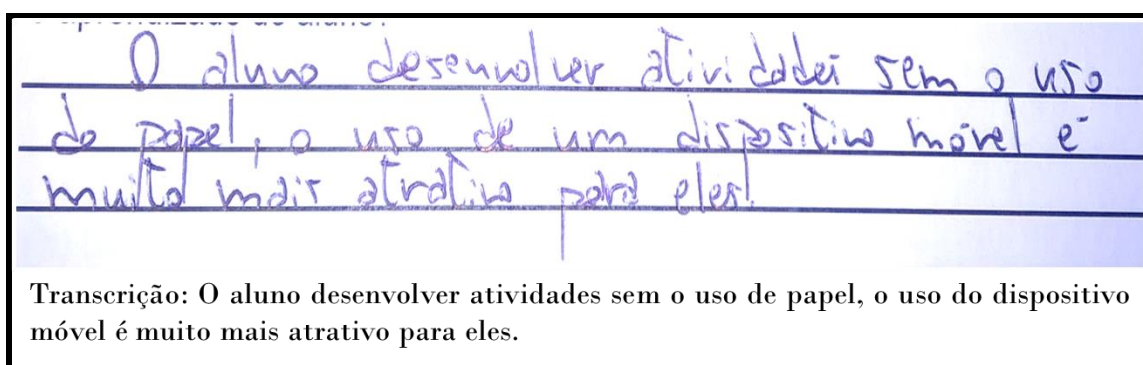 aprendizado do aluno?
O aluno desenvolver atividades sem o uso
do papel, o uso de um dispositivo móvel é
muito mais atrativo para eles!
Transcrição: O aluno desenvolver atividades sem o uso de papel, o uso do dispositivo
móvel é muito mais atrativo para eles.